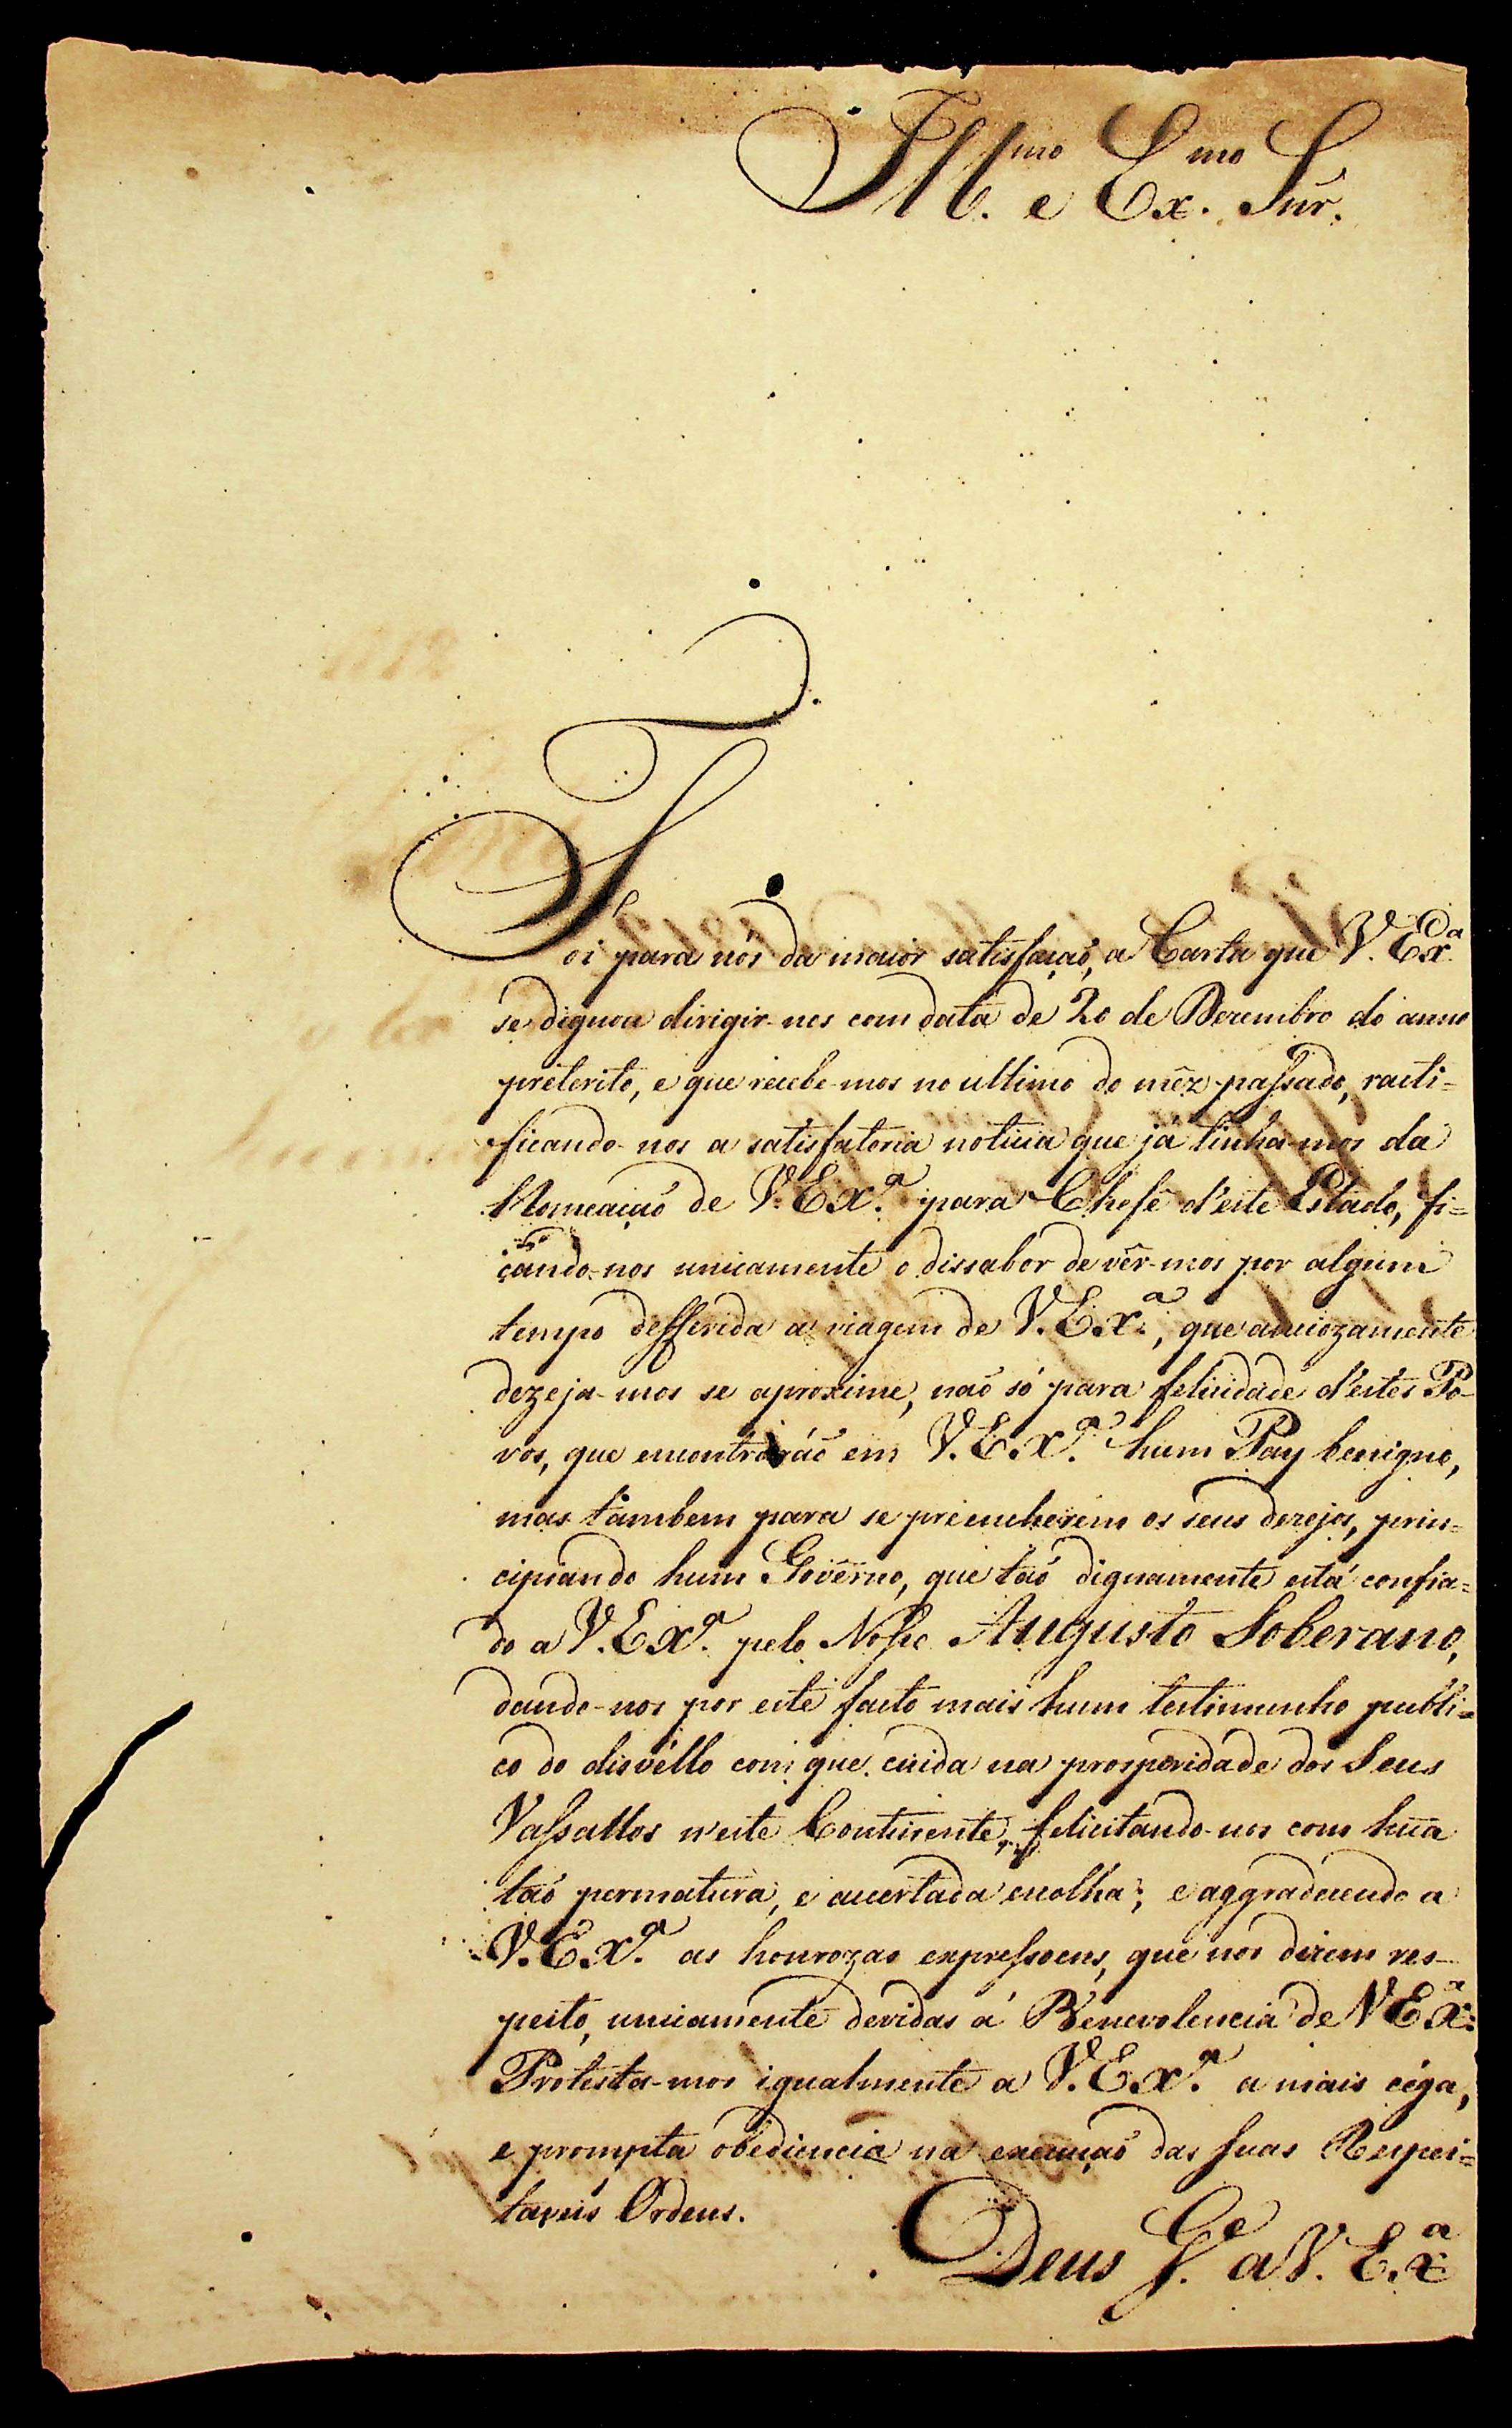 Ill.mo e Ex.mo Snr.
Foi para nós da maior satisfação, a Carta que V. Ex.a
se dignou dirigir-nos com data de 20 de Dezembro do anno
preterito, e que recebe-mos no ultimo do mêz passado, racti=
ficando-nos a satisfatoria noticia que já tinha-mos da
Nomeação de V. Ex.a para Chefe d'este Estado, fi=
cando-nos unicamente o dissabor de vêr-mos por algum
tempo defferida a viagem de V. Ex.a, que anciozamente
dezeja-mos se aproxime, não só para felicidade d'estes Po-
vos, que encontraráõ em V. Ex.a hum Pay benigno,
mas tambem para se preencherem os seus dezejos, prin=
cipiando hum Govêrno, que tão dignamente está confia=
do a V. Ex.a pelo Nosso Augusto Soberano,
dando-nos por este facto mais hum testimunho publi=
co do disvéllo com que cuida na prosperidade dos Seus
Vassallos n'este Continente, felicitando-nos com hũa
tão permatura, e acertada escolha; e aggradecendo a
V. Ex.a as honrozas expressoens, que nos dizem res-
peito, unicamente devidas á Benevolencia de V Ex.a:
Protesta-mos igualmente a V. Ex.a a mais céga,
e prompta obediencia na execução das suas Respei=
taveis Ordens.
Deus G.e a V. Ex.a